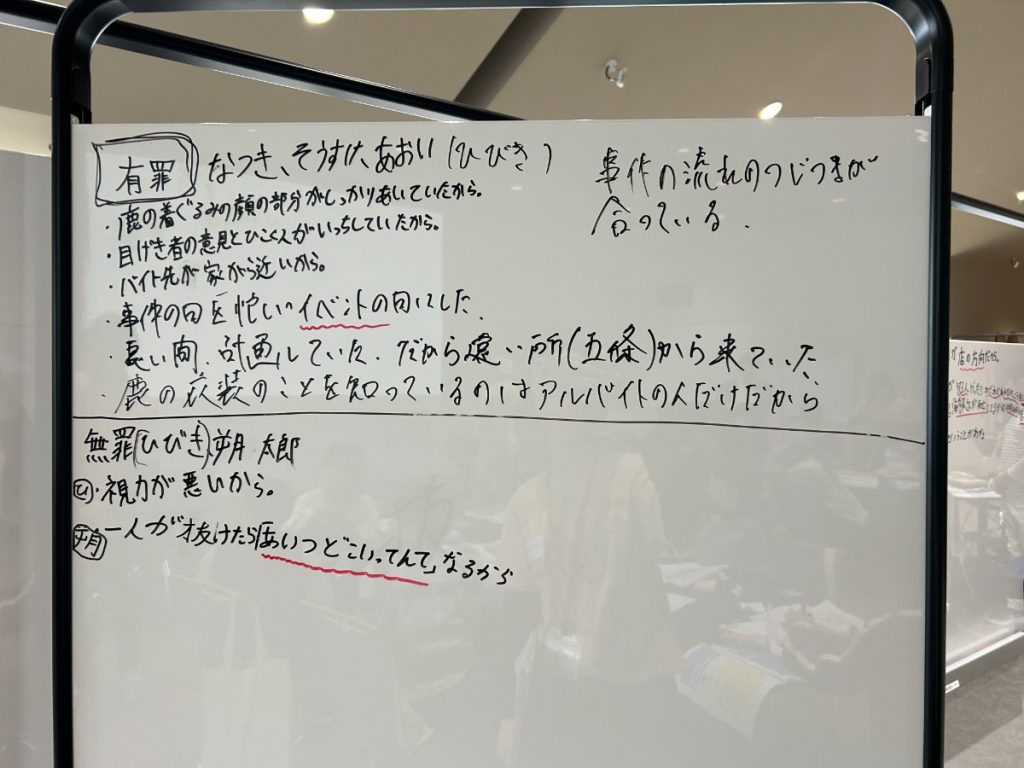 有罪 なつき、そうすけ、あおい(ひびき)
・鹿の着ぐるみの顔の部分がしっかりあいていたから。
・目げき者の意見とひこく人がいっちしていたから。
・バイト先が家から近いから。
・事件の日を忙しいイベントの日にした.
・長い間、計画していた. だから遠い所(五條)から来ていた
・鹿の衣装のことを知っているのはアルバイトの人だけだから
事件の流れのつじつまが
合っている.
無罪(ひびき)朔 太郎
ひ・視力が悪いから。
朔 一人が抜けたら「あいつどこいってんて」なるから
店の方向だから。